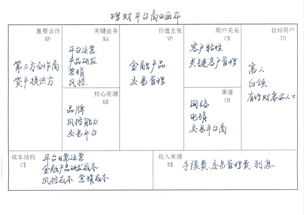 理财平台商业画布
重要合作
KP
第三方合作商
资产提供方
关键业务
KA
平台运营
产品研发
营销
风控
价值主张
VP
金融产品
交易管理
客户关系
CR
客户粘性
关键客户管理
目标用户
TU
富人
白领
有理财需求人士
核心资源
KR
品牌
风控能力
交易平台
渠道
CH
网络
电销
交易平台商
成本结构
C$
平台日常运营
金融产品研发成本
风控成本 营销成本
收入来源
R$
手续费、交易管理费、利息